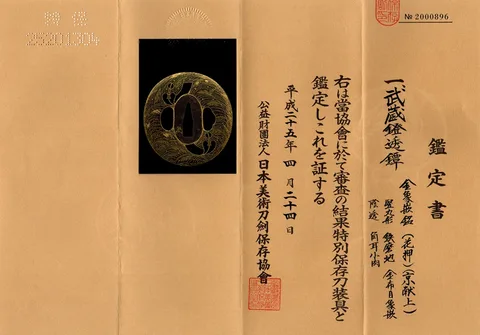 № 2000896
特保
25201304
鑑定書
一、武蔵鐙透鐔
金象嵌銘(花押)(京献上)
竪丸形 鉄磨地 金布目象嵌
陰透 角耳小肉
右は當協會に於て審査の結果特別保存刀装具と
鑑定しこれを証する
平成二十五年四月二十四日
公益財團法人 日本美術刀劍保存協會